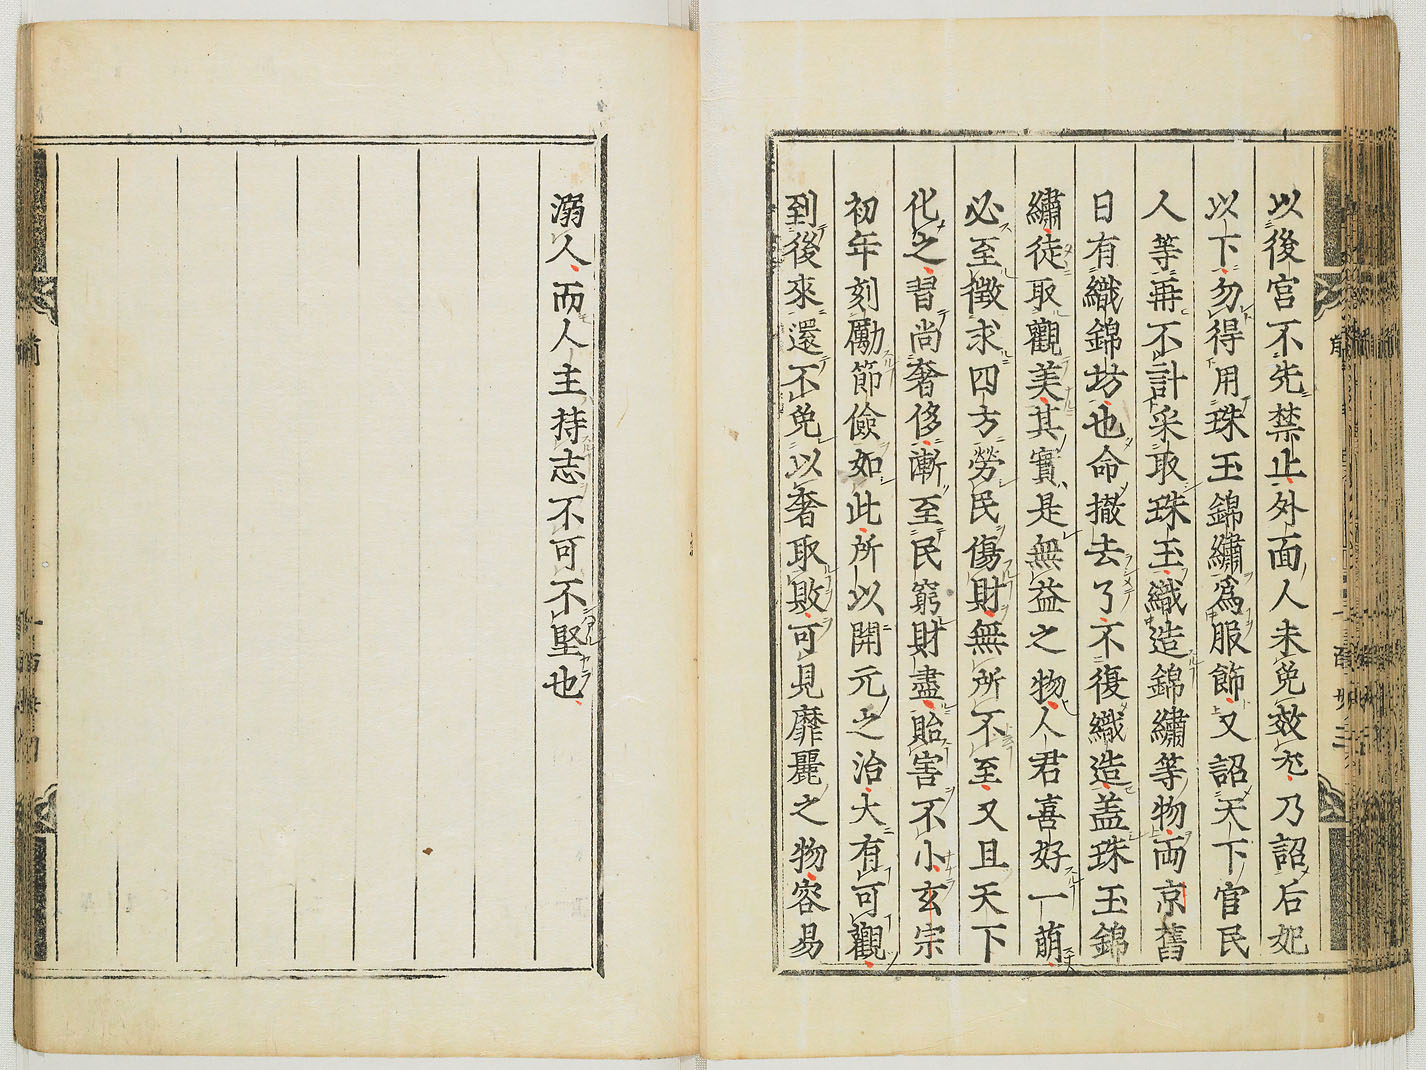 以後宮不先禁止外面人未免效尤乃詔后妃
以下勿得用珠玉錦繡爲服飾又詔天下官民
人等再不計采取珠玉織造錦繡等物両京舊
日有織錦坊也命撤去了不復織造盖珠玉錦
繡徒取觀美其實是無益之物人君喜好一萌
必至徴求四方勞民傷財無所不至又且天下
化之習尚奢侈漸至民窮財盡貽害不小玄宗
初年刻勵節儉如此所以開元之治大有可觀
到後來還不免以奢取敗可見靡麗之物容易
溺人而人主持志不可不堅也